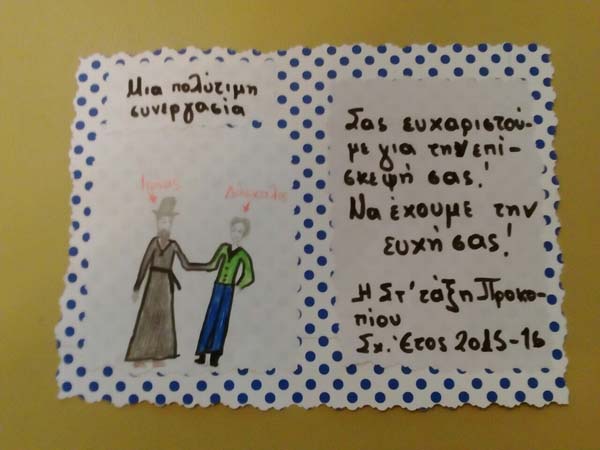 Μια πολύτιμη
συνεργασία
Ιερέας
Δάσκαλος
Σας ευχαριστού-
με για την επί-
σκεψή σας!
Να έχουμε την
ευχή σας!
Η Στ' τάξη Προκο-
πίου
Σχ. Έτος 2015-16